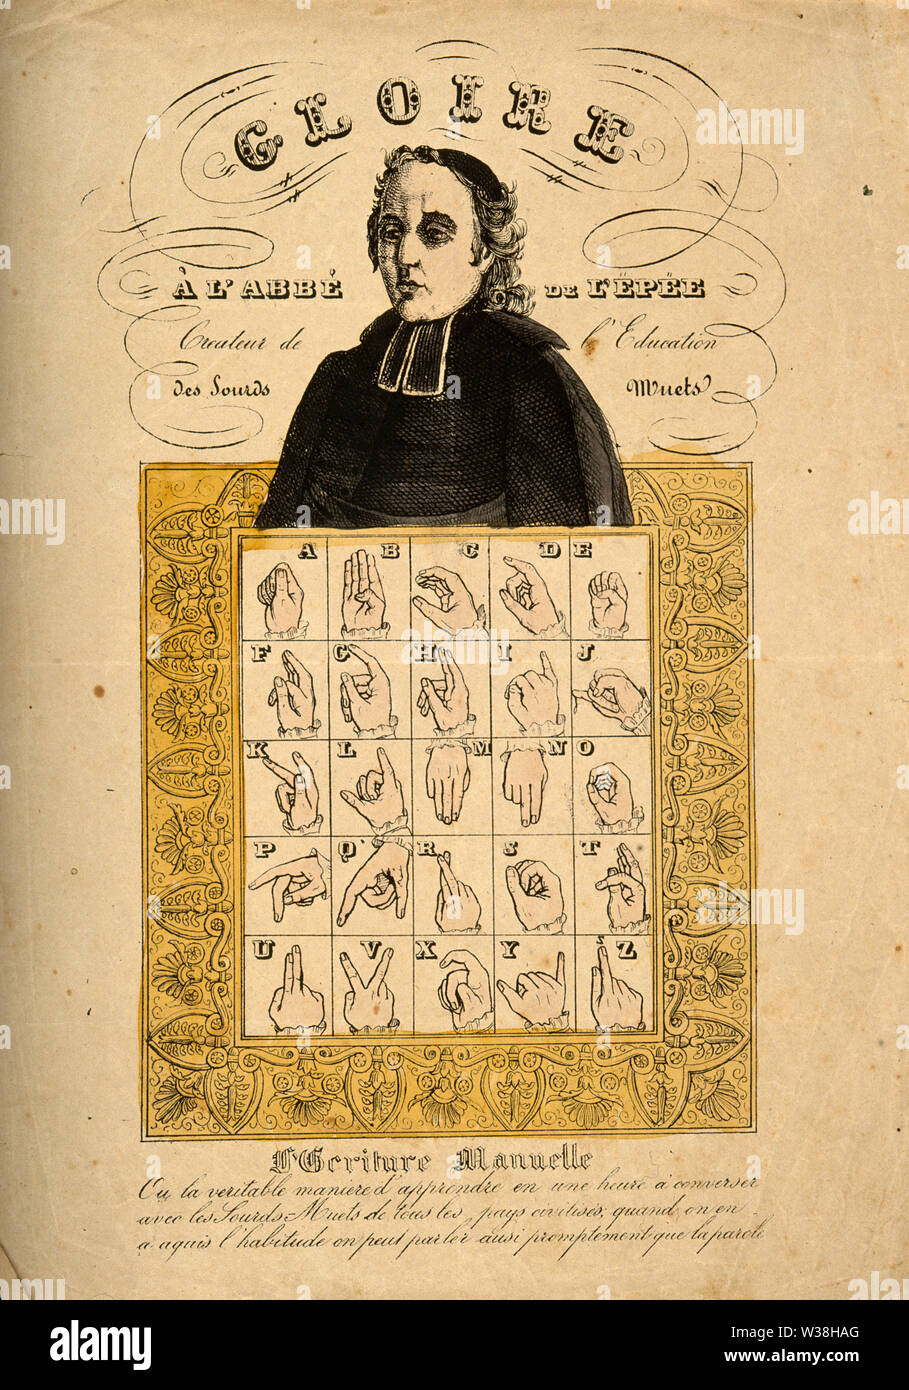 GLOIRE
À L'ABBÉ DE L'ËPÉE
Createur de l'Education
des Sourds Muets
A B C D E
F G H I J
K L M N O
P Q R S T
U V X Y Z
L'Ecriture Manuelle
Ou la veritable maniere d'apprendre en une heure à converser
avec les Sourds-Muets de tous les pays civilisés, quand on en
a aquis l'habitude on peut parler ausi promptement que la parole
a alamy stock photo
W38HAG
www.alamy.com